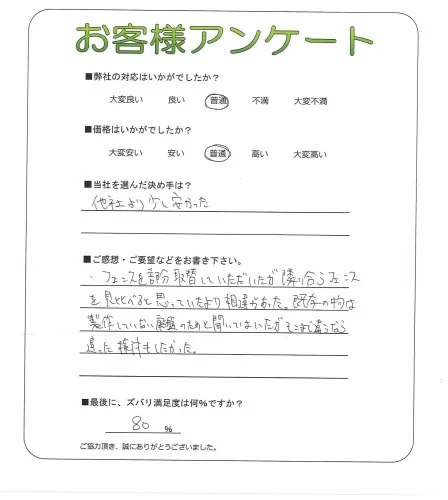 お客様アンケート
■弊社の対応はいかがでしたか？
大変良い 良い 普通 不満 大変不満
■価格はいかがでしたか？
大変安い 安い 普通 高い 大変高い
■当社を選んだ決め手は？
他社より少し安かった
■ご感想・ご要望などをお書き下さい。
・フェンスを部分取替していただいたが隣り合うフェンス
を見比べると思っていたより相違があった。既存の物は
製作していない廃盤のためと聞いていましたがそこまで違うなら
違った検討もしたかった。
■最後に、ズバリ満足度は何％ですか？
80 %
ご協力頂き、誠にありがとうございました。